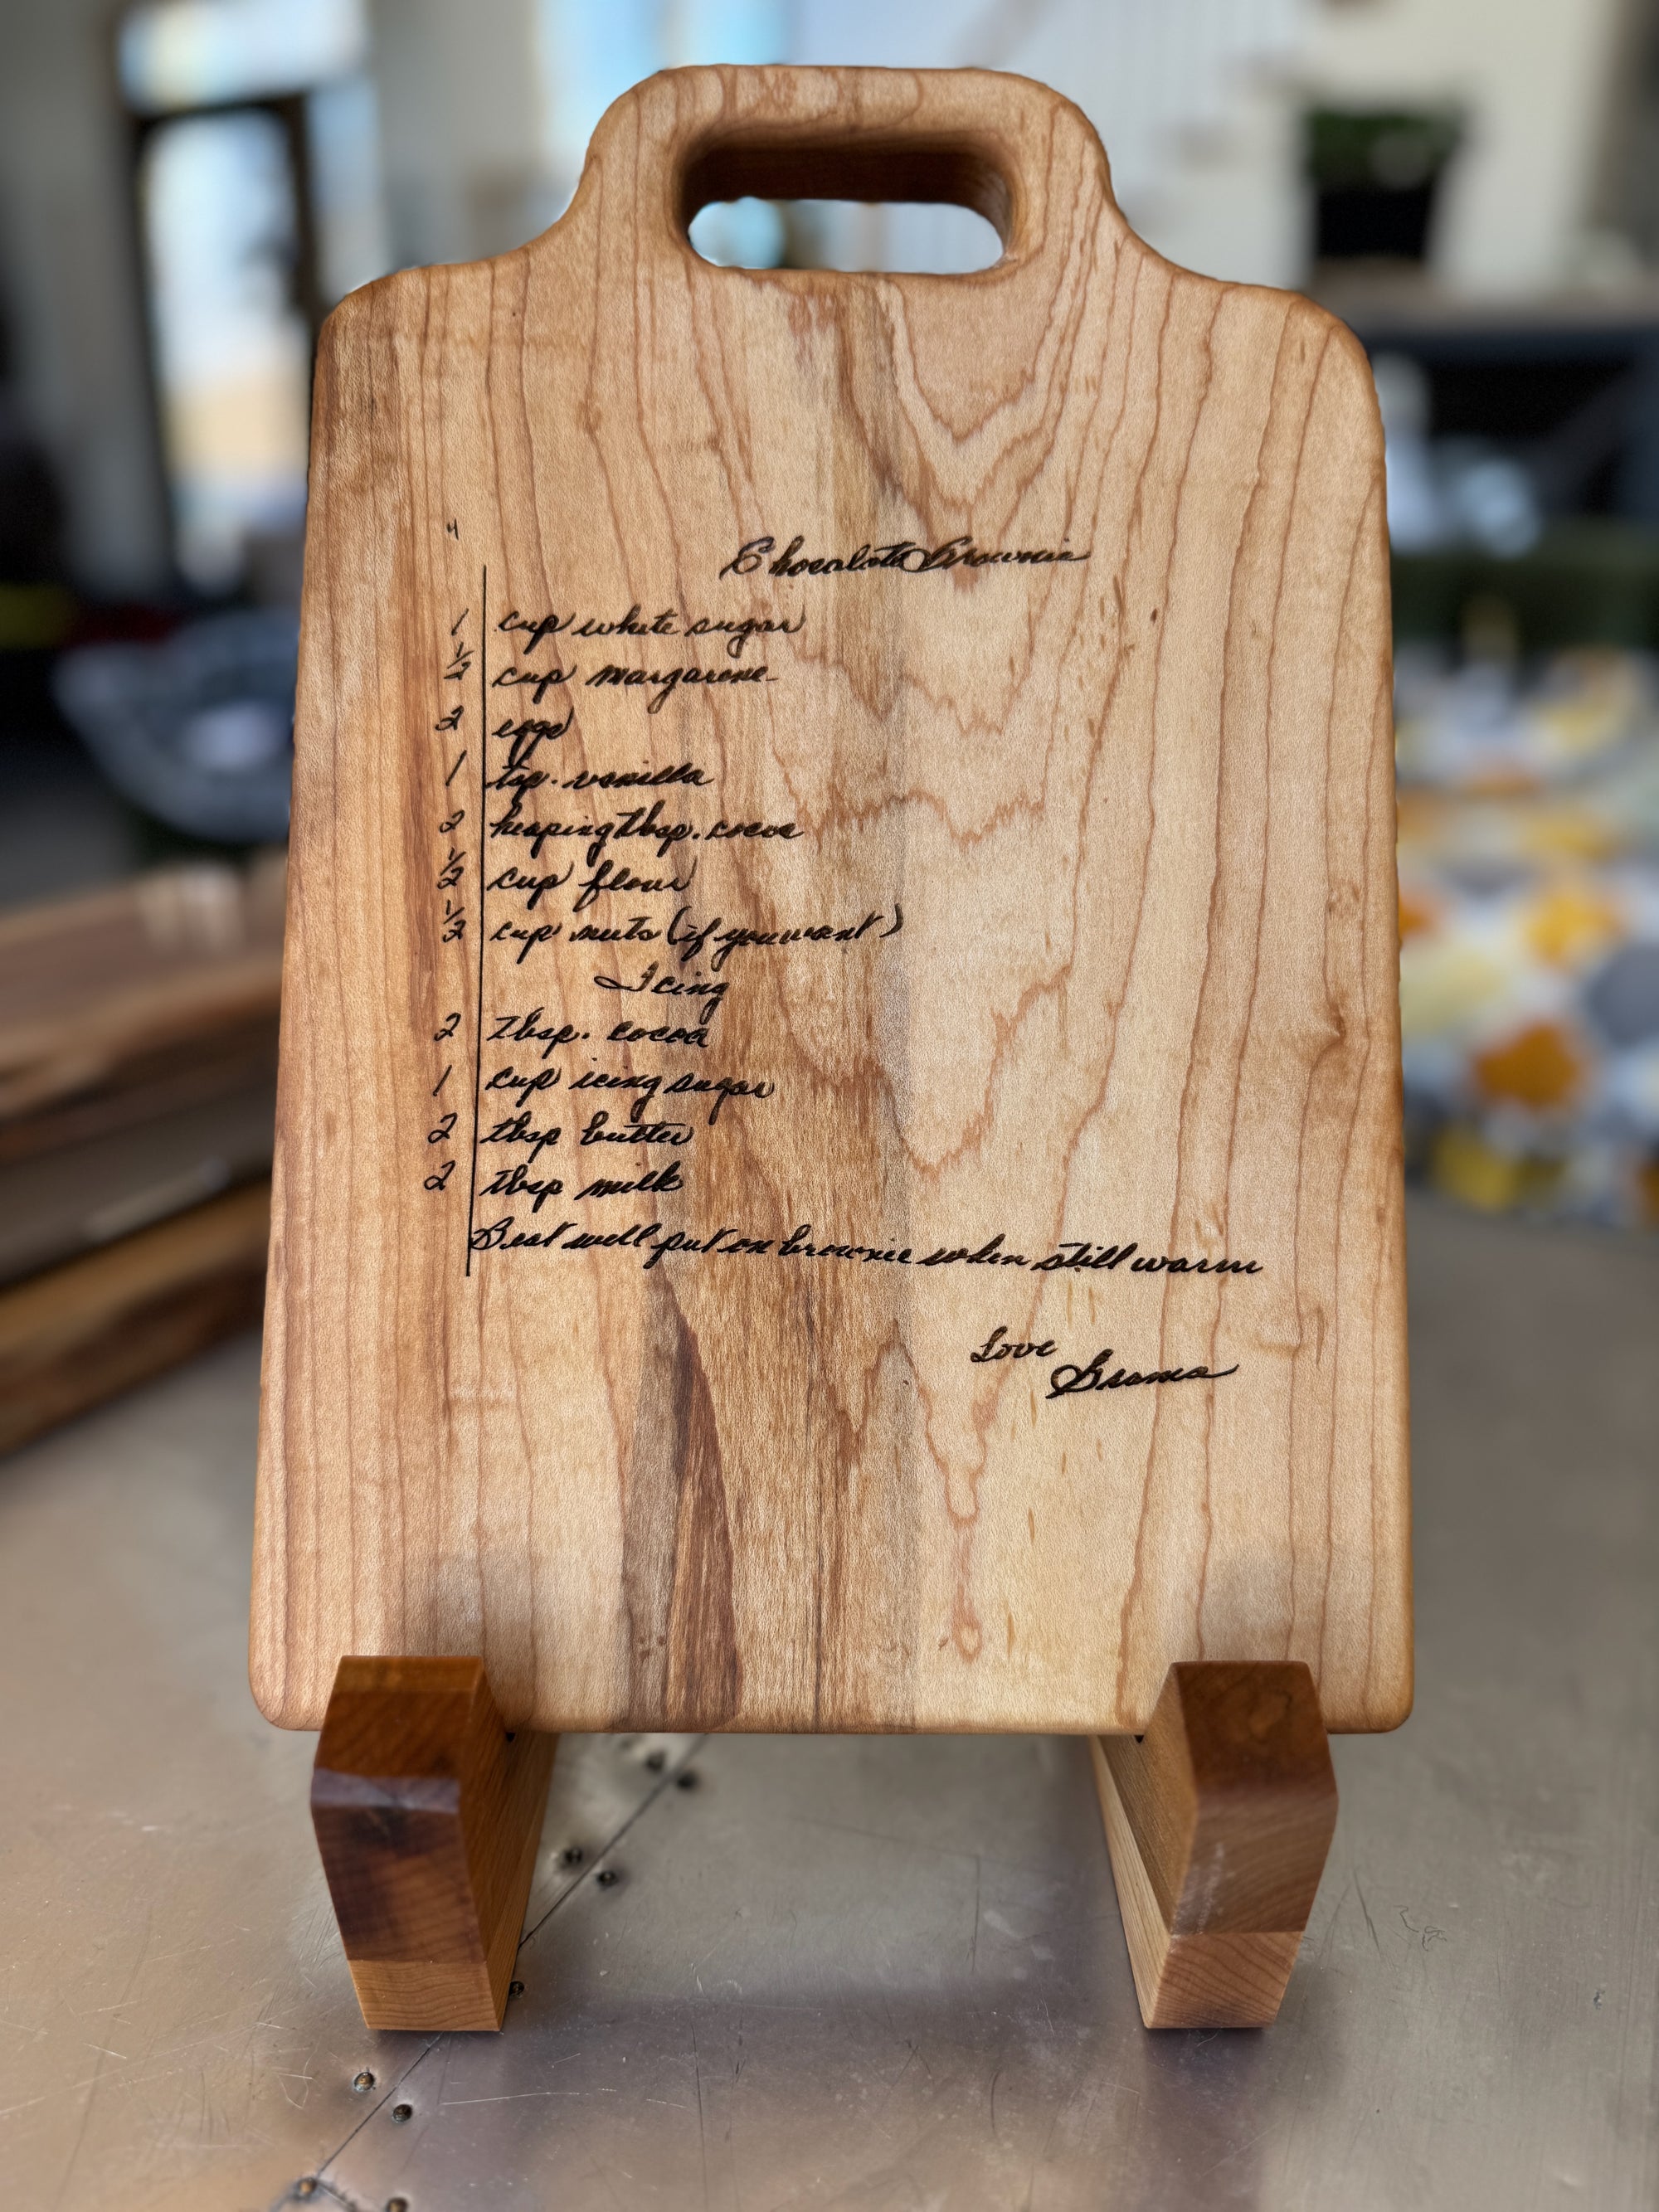 4
Chocolate Brownie
1 cup white sugar
1/2 cup margarine
2 eggs
1 tsp. vanilla
2 heaping tbsp. cocoa
1/2 cup flour
1/2 cup nuts (if you want)
Icing
2 tbsp. cocoa
1 cup icing sugar
2 tbsp butter
2 tbsp milk
Beat well put on brownie when still warm
Love
Grama